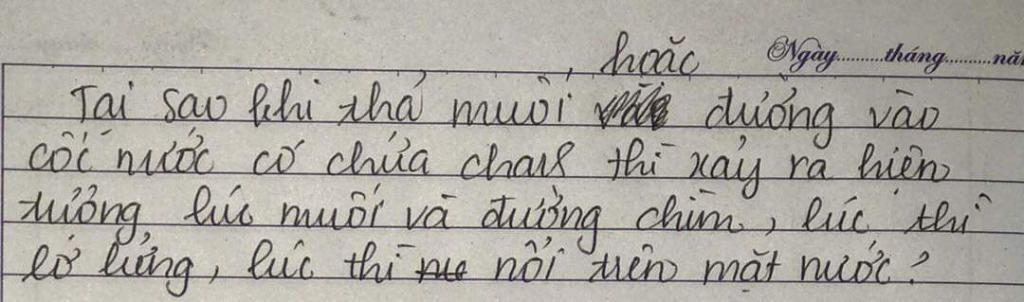 , hoặc Ngày..........tháng..........nă
Tại sao khi thả muối đường vào
cốc nước có chứa chanh thì xảy ra hiện
tượng lúc muối và đường chìm, lúc thì
lơ lửng, lúc thì nổi trên mặt nước?